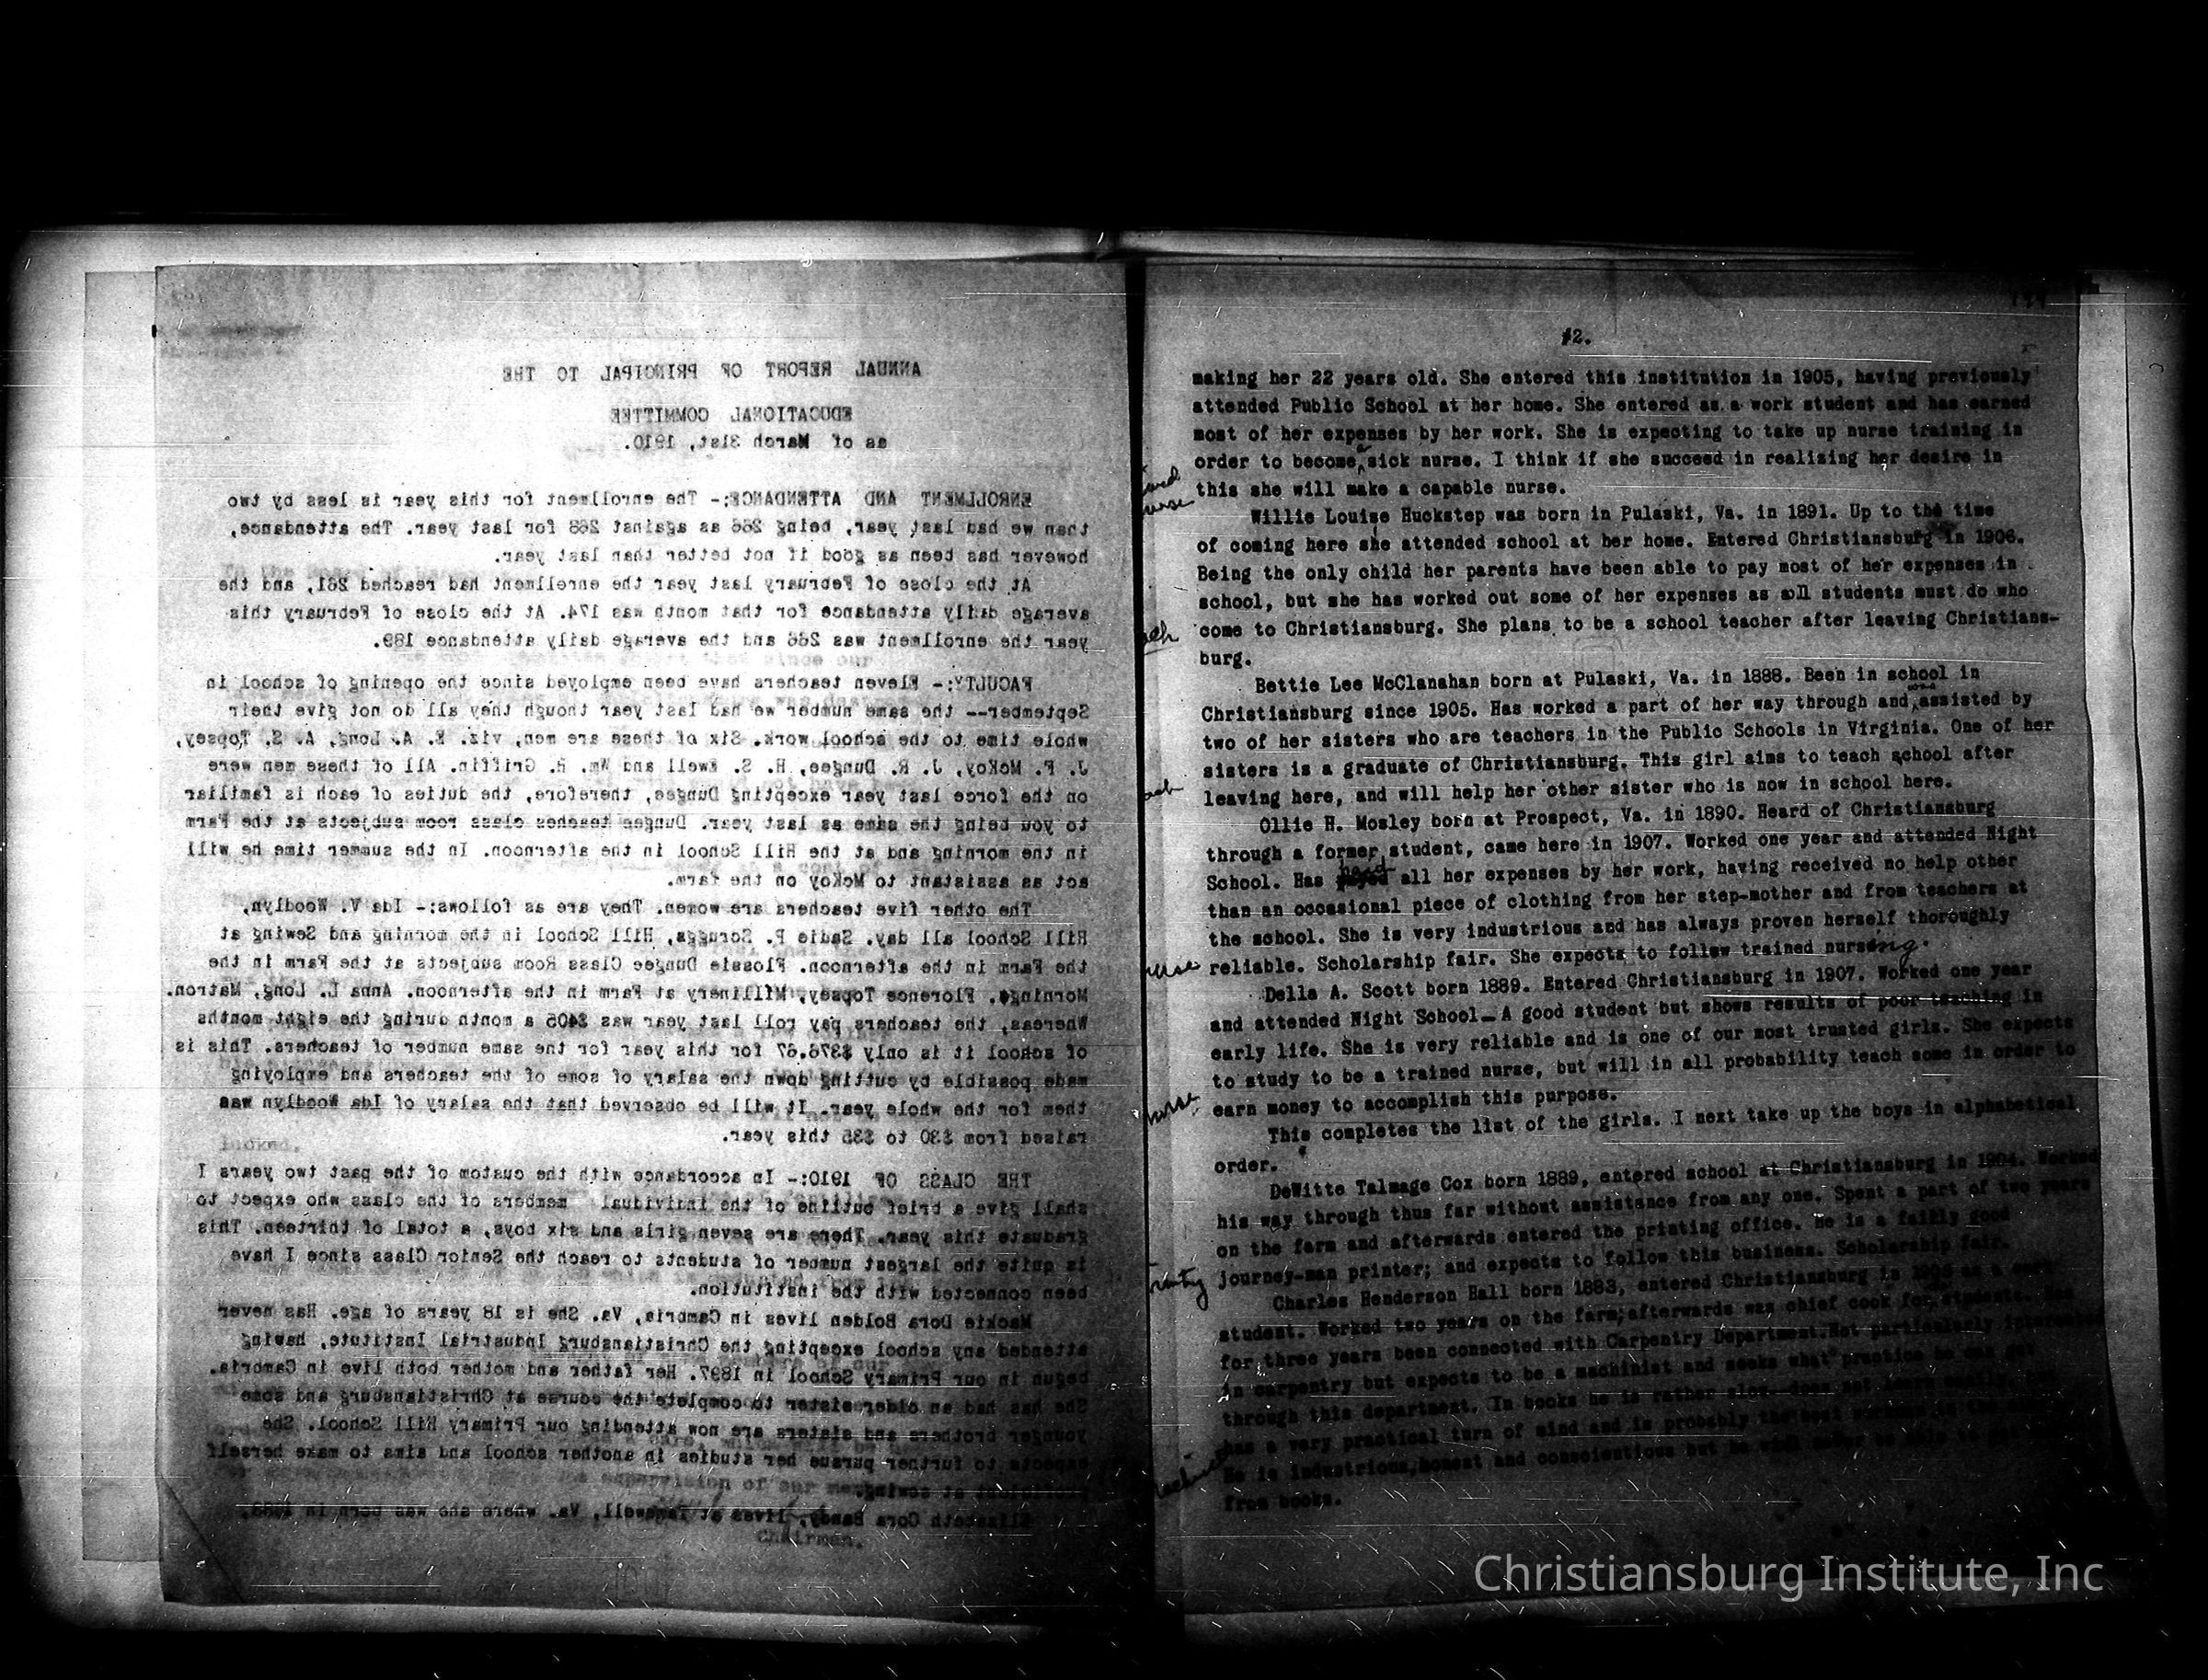 ANNUAL REPORT OF PRINCIPAL TO THE
EDUCATIONAL COMMITTEE
as of March 31st, 1910.
ENROLLMENT AND ATTENDANCE:- The enrollment for this year is less by two
than we had last year, being 266 as against 268 for last year. The attendance,
however has been as good if not better than last year.
At the close of February last year the enrollment had reached 261, and the
average daily attendance for that month was 174. At the close of February this
year the enrollment was 266 and the average daily attendance 189.
FACULTY:- Eleven teachers have been employed since the opening of school in
September-- the same number we had last year though they all do not give their
whole time to the school work. Six of these are men, viz. E. A. Long, A. S. Topsey,
J. P. McKoy, J. R. Dungee, H. S. Ewell and Wm. H. Griffin. All of these men were
on the force last year excepting Dungee, therefore, the duties of each is familiar
to you being the same as last year. Dungee teaches class room subjects at the Farm
in the morning and at the Hill School in the afternoon. In the summer time he will
act as assistant to McKoy on the farm.
The other five teachers are women. They are as follows:- Ida V. Woodlyn,
Hill School all day. Sadie P. Scruggs, Hill School in the morning and Sewing at
the Farm in the afternoon. Flossie Dungee Class Room subjects at the Farm in the
Morning. Florence Topsey, Millinery at Farm in the afternoon. Anna L. Long, Matron.
Whereas, the teachers pay roll last year was $405 a month during the eight months
of school it is only $376.67 for this year for the same number of teachers. This is
made possible by cutting down the salary of some of the teachers and employing
them for the whole year. It will be observed that the salary of Ida Woodlyn was
raised from $30 to $35 this year.
THE CLASS OF 1910:- In accordance with the custom of the past two years I
shall give a brief outline of the individual members of the class who expect to
graduate this year. There are seven girls and six boys, a total of thirteen. This
is quite the largest number of students to reach the Senior Class since I have
been connected with the institution.
Mackie Dora Bolden lives in Cambria, Va. She is 18 years of age. Has never
attended any school excepting the Christiansburg Industrial Institute, having
begun in our Primary School in 1897. Her father and mother both live in Cambria.
She has had an older sister to complete the course at Christiansburg and some
younger brothers and sisters are now attending our Primary Hill School. She
expects to further pursue her studies in another school and aims to make herself
at sewing.
Elizabeth Cora Bandy, lives at Tazewell, Va. where she was born in 1888,
Chairman.
12.
making her 22 years old. She entered this institution in 1905, having previously
attended Public School at her home. She entered as a work student and has earned
most of her expenses by her work. She is expecting to take up nurse training in
order to become a sick nurse. I think if she succeed in realizing her desire in
this she will make a capable nurse.
nurse
Willie Louise Huckstep was born in Pulaski, Va. in 1891. Up to the time
of coming here she attended school at her home. Entered Christiansburg in 1906.
Being the only child her parents have been able to pay most of her expenses in
school, but she has worked out some of her expenses as all students must do who
come to Christiansburg. She plans to be a school teacher after leaving Christians-
burg.
Bettie Lee McClanahan born at Pulaski, Va. in 1888. Been in school in
Christiansburg since 1905. Has worked a part of her way through and was assisted by
two of her sisters who are teachers in the Public Schools in Virginia. One of her
sisters is a graduate of Christiansburg. This girl aims to teach school after
leaving here, and will help her other sister who is now in school here.
Ollie H. Mosley born at Prospect, Va. in 1890. Heard of Christiansburg
through a former student, came here in 1907. Worked one year and attended Night
School. Has all her expenses by her work, having received no help other
than an occasional piece of clothing from her step-mother and from teachers at
the school. She is very industrious and has always proven herself thoroughly
reliable. Scholarship fair. She expects to follow trained nursing.
Della A. Scott born 1889. Entered Christiansburg in 1907. Worked one year
and attended Night School- A good student but shows results of poor teaching in
early life. She is very reliable and is one of our most trusted girls. She expects
to study to be a trained nurse, but will in all probability teach some in order to
earn money to accomplish this purpose.
nurse
This completes the list of the girls. I next take up the boys in alphabetical
order.
DeWitte Talmage Cox born 1889, entered school at Christiansburg in 1904. Worked
his way through thus far without assistance from any one. Spent a part of two years
on the farm and afterwards entered the printing office. He is a fairly good
journey-man printer; and expects to follow this business. Scholarship fair.
Charles Henderson Hall born 1883, entered Christiansburg in
student. Worked two years on the farm; afterwards was chief cook for students. Has
for three years been connected with Carpentry Department. Not particularly interested
in carpentry but expects to be a machinist and seeks what practice he can get
through this department. In books he is rather slow
has a very practical turn of mind and is probably the best
He is industrious, honest and conscientious but he will
from books.
Christiansburg Institute, Inc